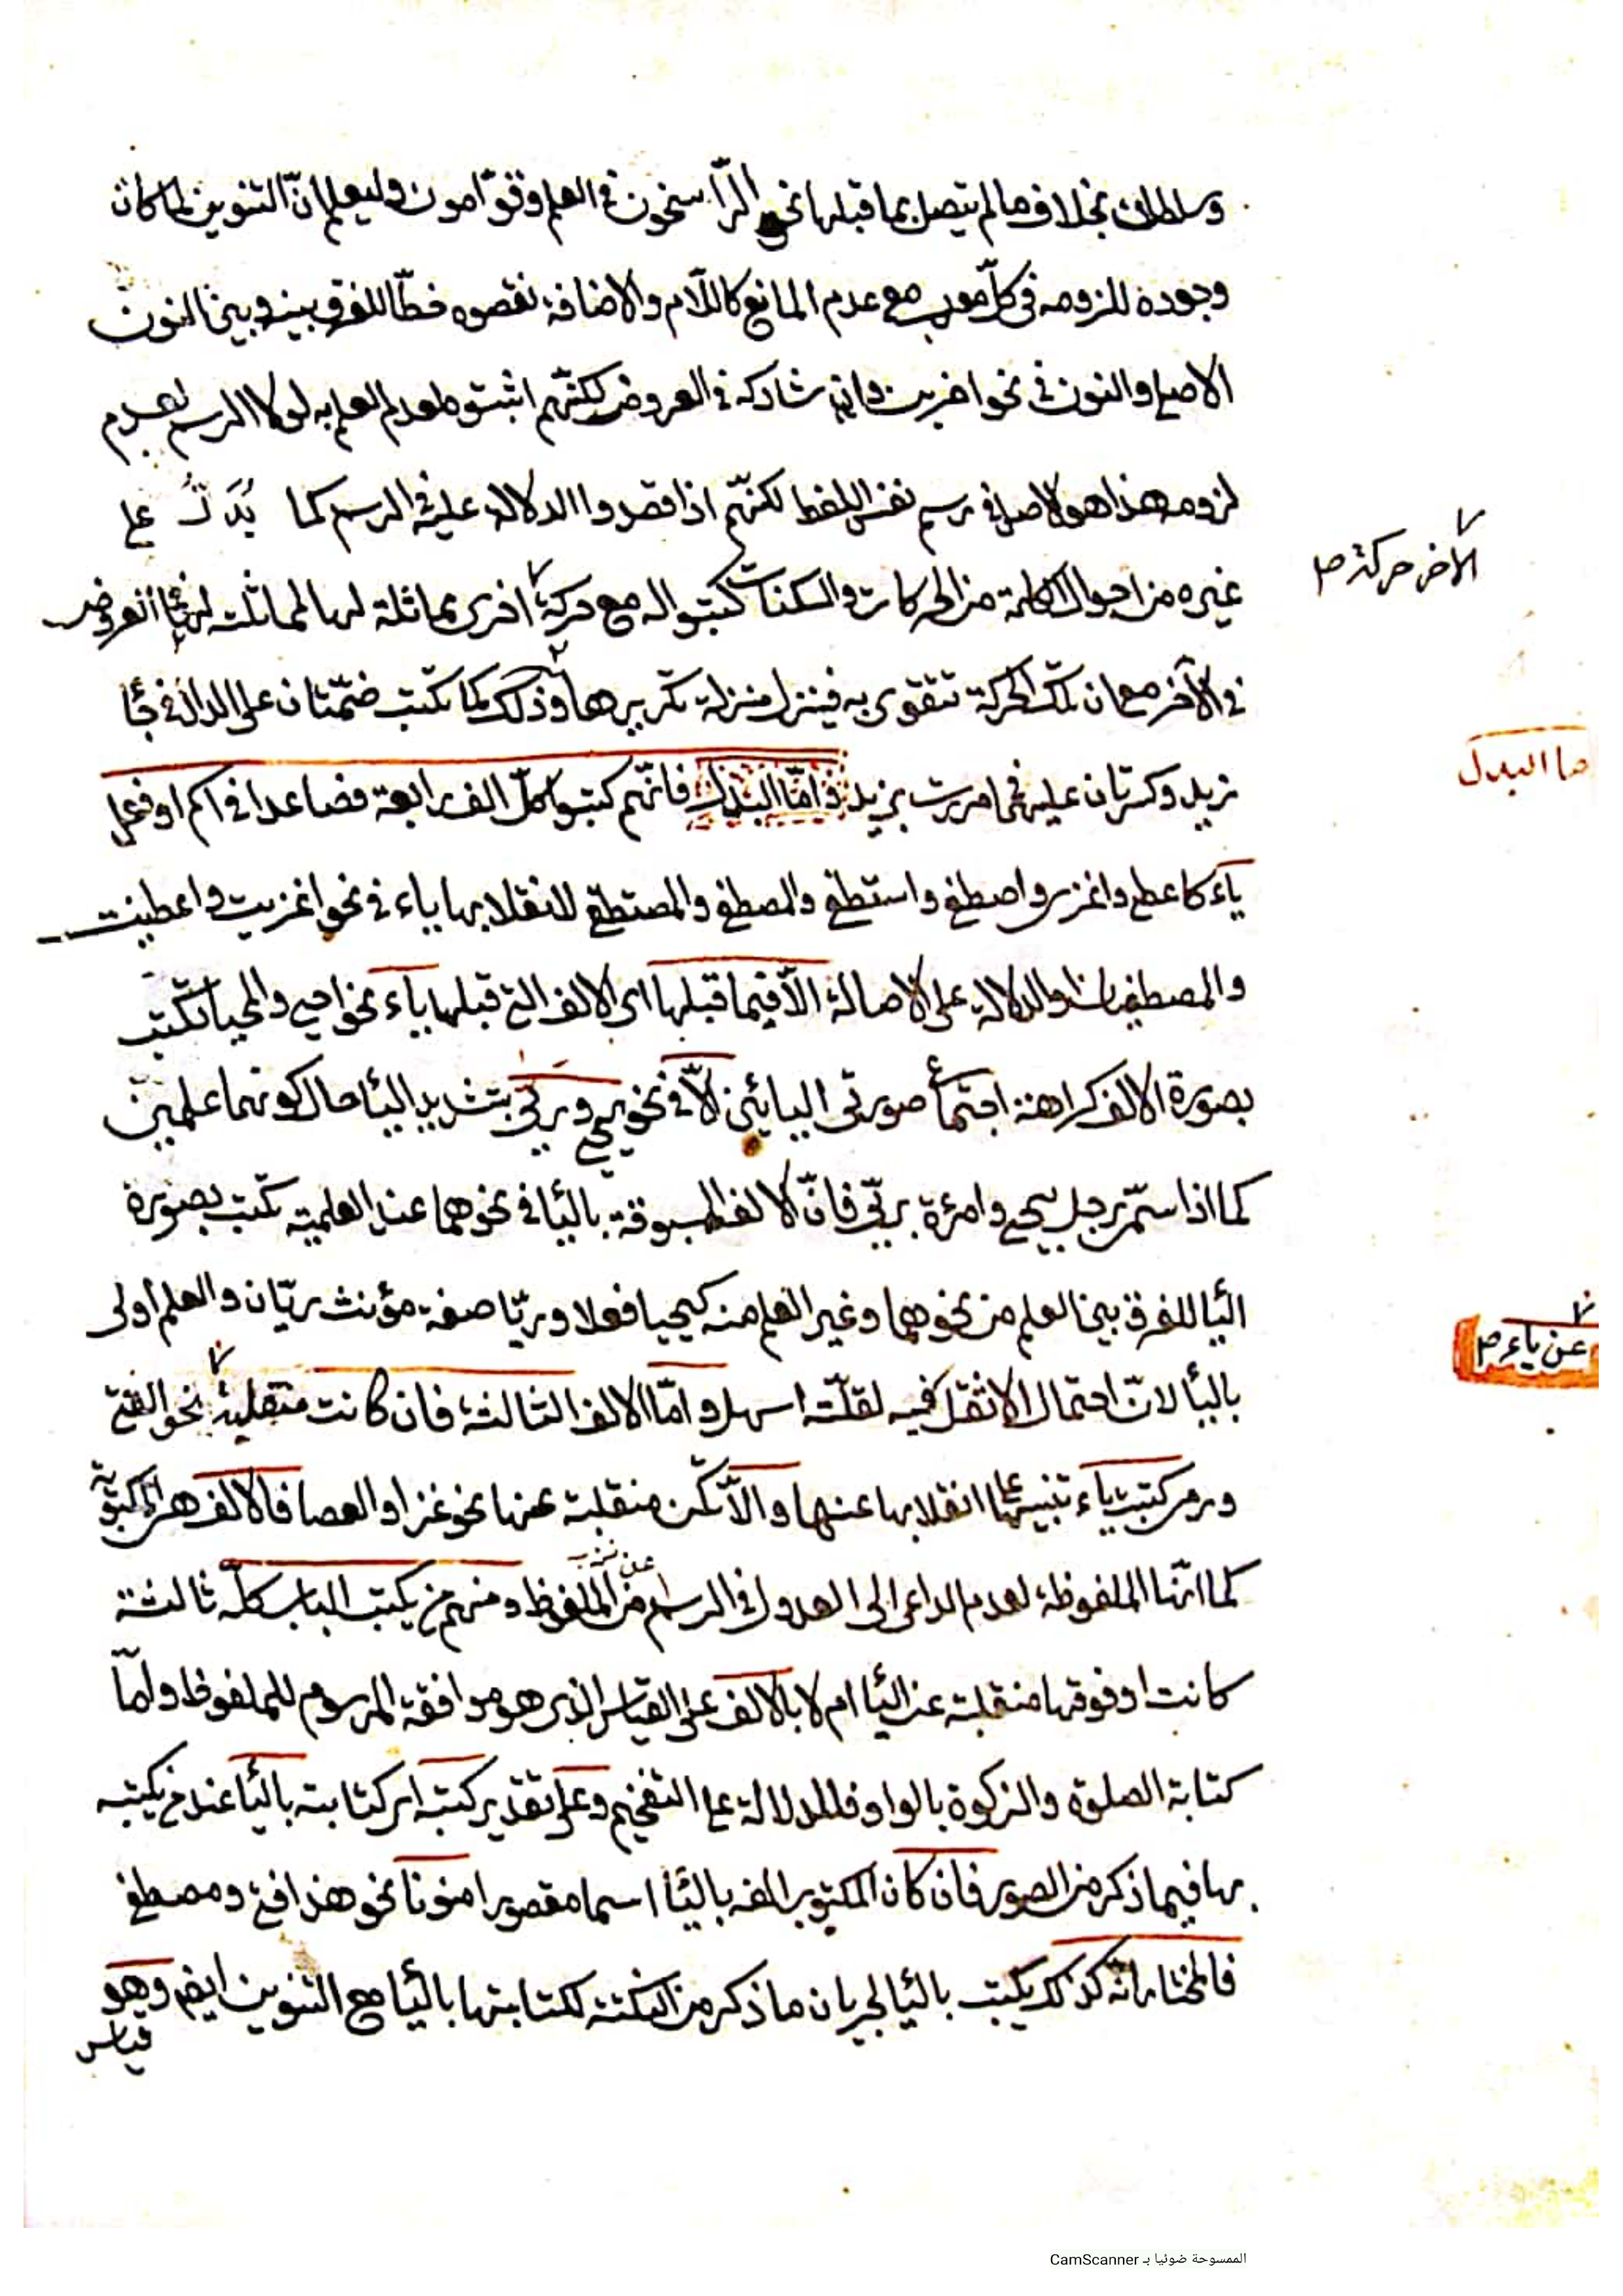 وسلطان بخلاف ما لم يتصل بما قبلها نحو الرّاسخون في العلم وقوّامون وليعلم انّ التنوين لما كان
وجوده للزومه في كلّ معرب مع عدم المانع كاللّام والاضافة نقصوه خطّا للفرق بينه وبين النون
الاصلي والنون في نحو اضربن وان شاركه في العروض لكنّهم اثبتوه لعدم العلم به لولا الرسم لعدم
لزومه هذا هو الاصل في رسم نفس اللفظ لكنّهم اذا قصدوا الدلالة عليه في الرسم كما يدلّ على
غيره من احوال الكلمة من الحركات والسكنات كتبوا له مع حركة اخرى مماثلة لها
في الآخر مع ان تلك الحركة تتقوى به فينزل منزلة تكريرها وذلك كما تكتب ضمّتان على الدال في جائ
زيد وكسرتان عليه في مررت بزيد وامّا البدل فانّهم كتبوا كلّ الف رابعة فصاعدا في اسم او فعل
ياء كاعطى واغزى واصطفى واستطفى والمصطفى والمستطفى للانقلابها ياء في نحو اغزيت واعطيت
والمصطفيان والدلالة على الاصالة الّا فيما قبلها اى الالف التي قبلها ياء نحو احيى والمحيا تكتب
بصورة الالف كراهة اجتماع صورتى اليائين الّا في نحو يحيى وريّى بتشديد اليا حال كونهما علمين
كما اذا سمّى رجل بيحيى وامرءة بريّى فانّ الالف المسبوقة باليا في نحوهما عند العلمية تكتب بصورة
اليا للفرق بين العلم من نحوهما وغير العلم منه كيحيا فعلا وريّا صفة مؤنث ريّان والعلم اولى
باليا لانّ احتمال الاثقل فيه لقلّته اسهل وامّا الالف الثالثة فان كانت منقلبة نحو الفتى
ورمى كتبت ياء تنبيها على انقلابها عنها والّا تكن منقلبة عنها نحو غزا والعصا فالالف هى المكتوبة
كما انّها الملفوظة لعدم الداعى الى العدول في الرسم عن الملفوظ ومنهم من يكتب الباب كلّه ثالثة
كانت او فوقها منقلبة عن اليا ام لا بالالف على القياس الذى هو موافقة المرسوم للملفوظ وامّا
كتابة الصلوة والزكوة بالواو فللدلالة على التفخيم وعلى تقدير كتبه اى كتابته باليا عند من يكتبه
بها فيما ذكر من الصور فان كان المكتوب الفه باليا اسما مقصورا منونا نحو هذا فتى ومصطفى
فالمختار انّه كذلك يكتب باليا لجريان ما ذكر من النكتة لكتابتها باليا مع التنوين ايضا وهو
قياس
الآخر حركة ص
ما البدل
عن ياء ص
الممسوحة ضوئيا بـ CamScanner